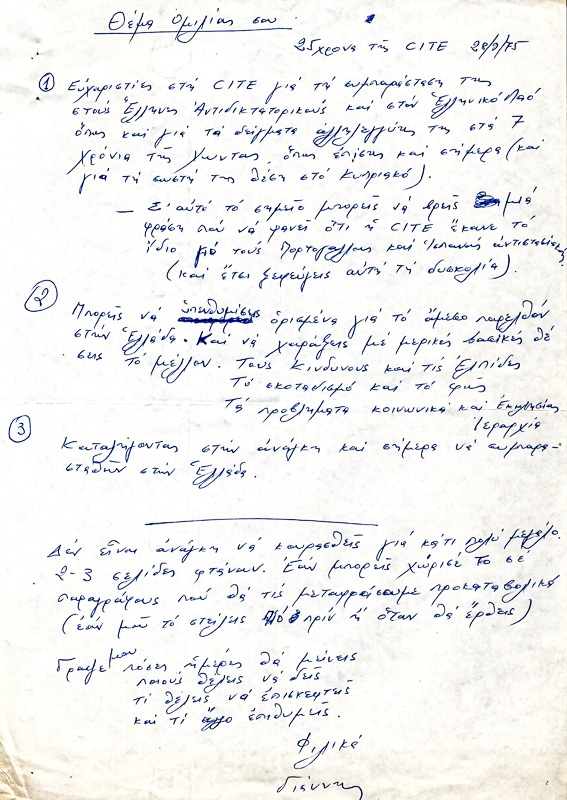 Θέμα Ὁμιλίας σου
25χρονα τῆς CITE 28/9/75
① Εὐχαριστίες στή CITE γιά τή συμπαράσταση της
στούς Ἕλληνες Ἀντιδικτατορικούς καί στόν Ἑλληνικό Λαό
ὅπως καί γιά τά δείγματα ἀλληλεγγύης της στά 7
χρόνια τῆς Χούντας, ὅπως ἐπίσης καί σήμερα (καί
γιά τή σωστή της θέση στό Κυπριακό).
— Σ' αὐτό τό σημεῖο μπορεῖς νά βρεῖς μιά
φράση πού νά φανεῖ ὅτι ἡ CITE ἔκανε τό
ἴδιο γιά τούς Πορτογάλλους καί Ἱσπανούς ἀντιστασιακούς
(καί ἔτσι ξεφεύγεις αὐτή τή δυσκολία).
② Μπορεῖς νά ὑπενθυμίσεις ὁρισμένα γιά τό ἄμεσο παρελθόν
στήν Ἑλλάδα. Καί νά χαράξεις μέ μερικές βασικές θέ
σεις τό μέλλον. Τούς Κινδύνους καί τίς Ἐλπίδες
Τό σκοταδισμό καί τό φῶς
Τά προβλήματα κοινωνικά καί Ἐκκλησίας
Ἱεραρχία
③ Καταλήγοντας στήν ἀνάγκη καί σήμερα νά συμπαρα-
σταθοῦν στήν Ἑλλάδα.
Δέν εἶναι ἀνάγκη νά κουρασθεῖς γιά κάτι πολύ μεγάλο.
2-3 σελίδες φτάνουν. Ἐάν μπορεῖς χώρισέ το σέ
παραγράφους πού θά τίς μεταφράσουμε προκαταβολικά
(ἐάν μοῦ τό στείλεις πρίν ἤ ὅταν θά ἔρθεις)
Γράψε μου πόσες ἡμέρες θά μείνεις
ποιούς θέλεις νά δεῖς
τί θέλεις νά ἐπισκεφτεῖς
καί τί ἄλλο ἐπιθυμεῖς.
Φιλικά
Γιάννης